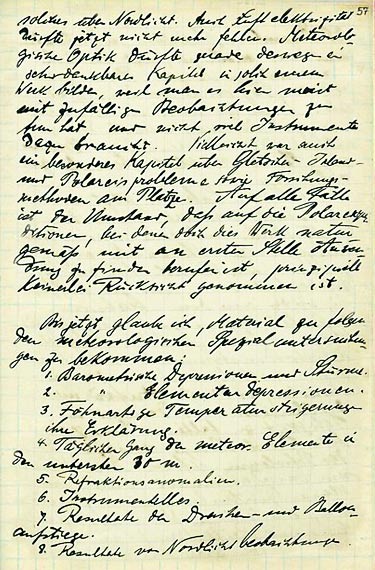 57
solches über Nordlicht. Auch Luftelektrizität
dürfte jetzt nicht mehr fehlen. Meteorolo-
gische Optik dürfte gerade deswegen ein
sehr dankbares Kapitel in solch einem
Werk bilden, weil man es hier meist
mit zufälligen Beobachtungen zu
tun hat und nicht viel Instrumente
dazu braucht. Vielleicht war auch
ein besonderes Kapitel über Gletscher- Inland-
und Polareisprobleme sowie Forschungs-
methoden am Platze. Auf alle Fälle
ist der Umstand, daß auf die Polarexpe-
ditionen, bei denen doch dies Werk natur
gemäß mit an erster Stelle Anwen
dung zu finden berufen ist, prinzipielle
keinerlei Rücksicht genommen ist.
Bis jetzt glaube ich, Material zu folgen
den meteorologischen Spezialuntersuchun-
gen zu bekommen:
1. Barometrische Depressionen und Stürme.
2. " Elementardepressionen.
3. Föhnartige Temperatursteigerungen
ihre Erklärung.
4. Täglicher Gang der meteor. Elemente in
den untersten 30 m.
5. Refraktionsanomalien.
6. Instrumentelles.
7. Resultate der Drachen- und Ballon-
aufstiege.
8. Resultate von Nordlichtbeobachtungen